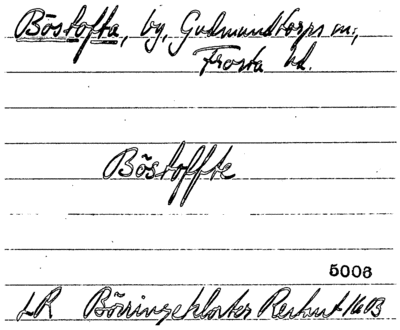 Böstofta, by, Gudmundtorps sn.,
Frosta hd.
Böstoffte
5006
LR Börringekloster 1603